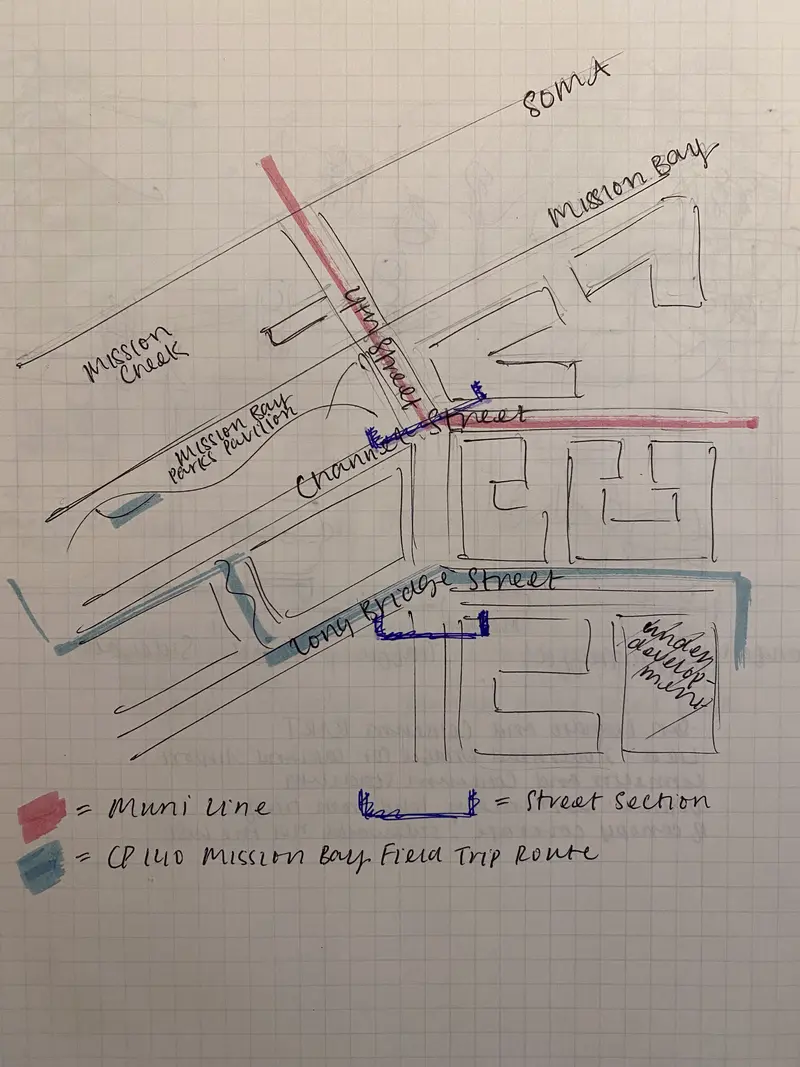 SOMA
Mission Bay
4th Street
Mission
Creek
Mission Bay
Parks Pavilion
Channel Street
Long Bridge Street
under
develop-
ment
= Muni Line
= Street Section
= CP 140 Mission Bay Field Trip Route